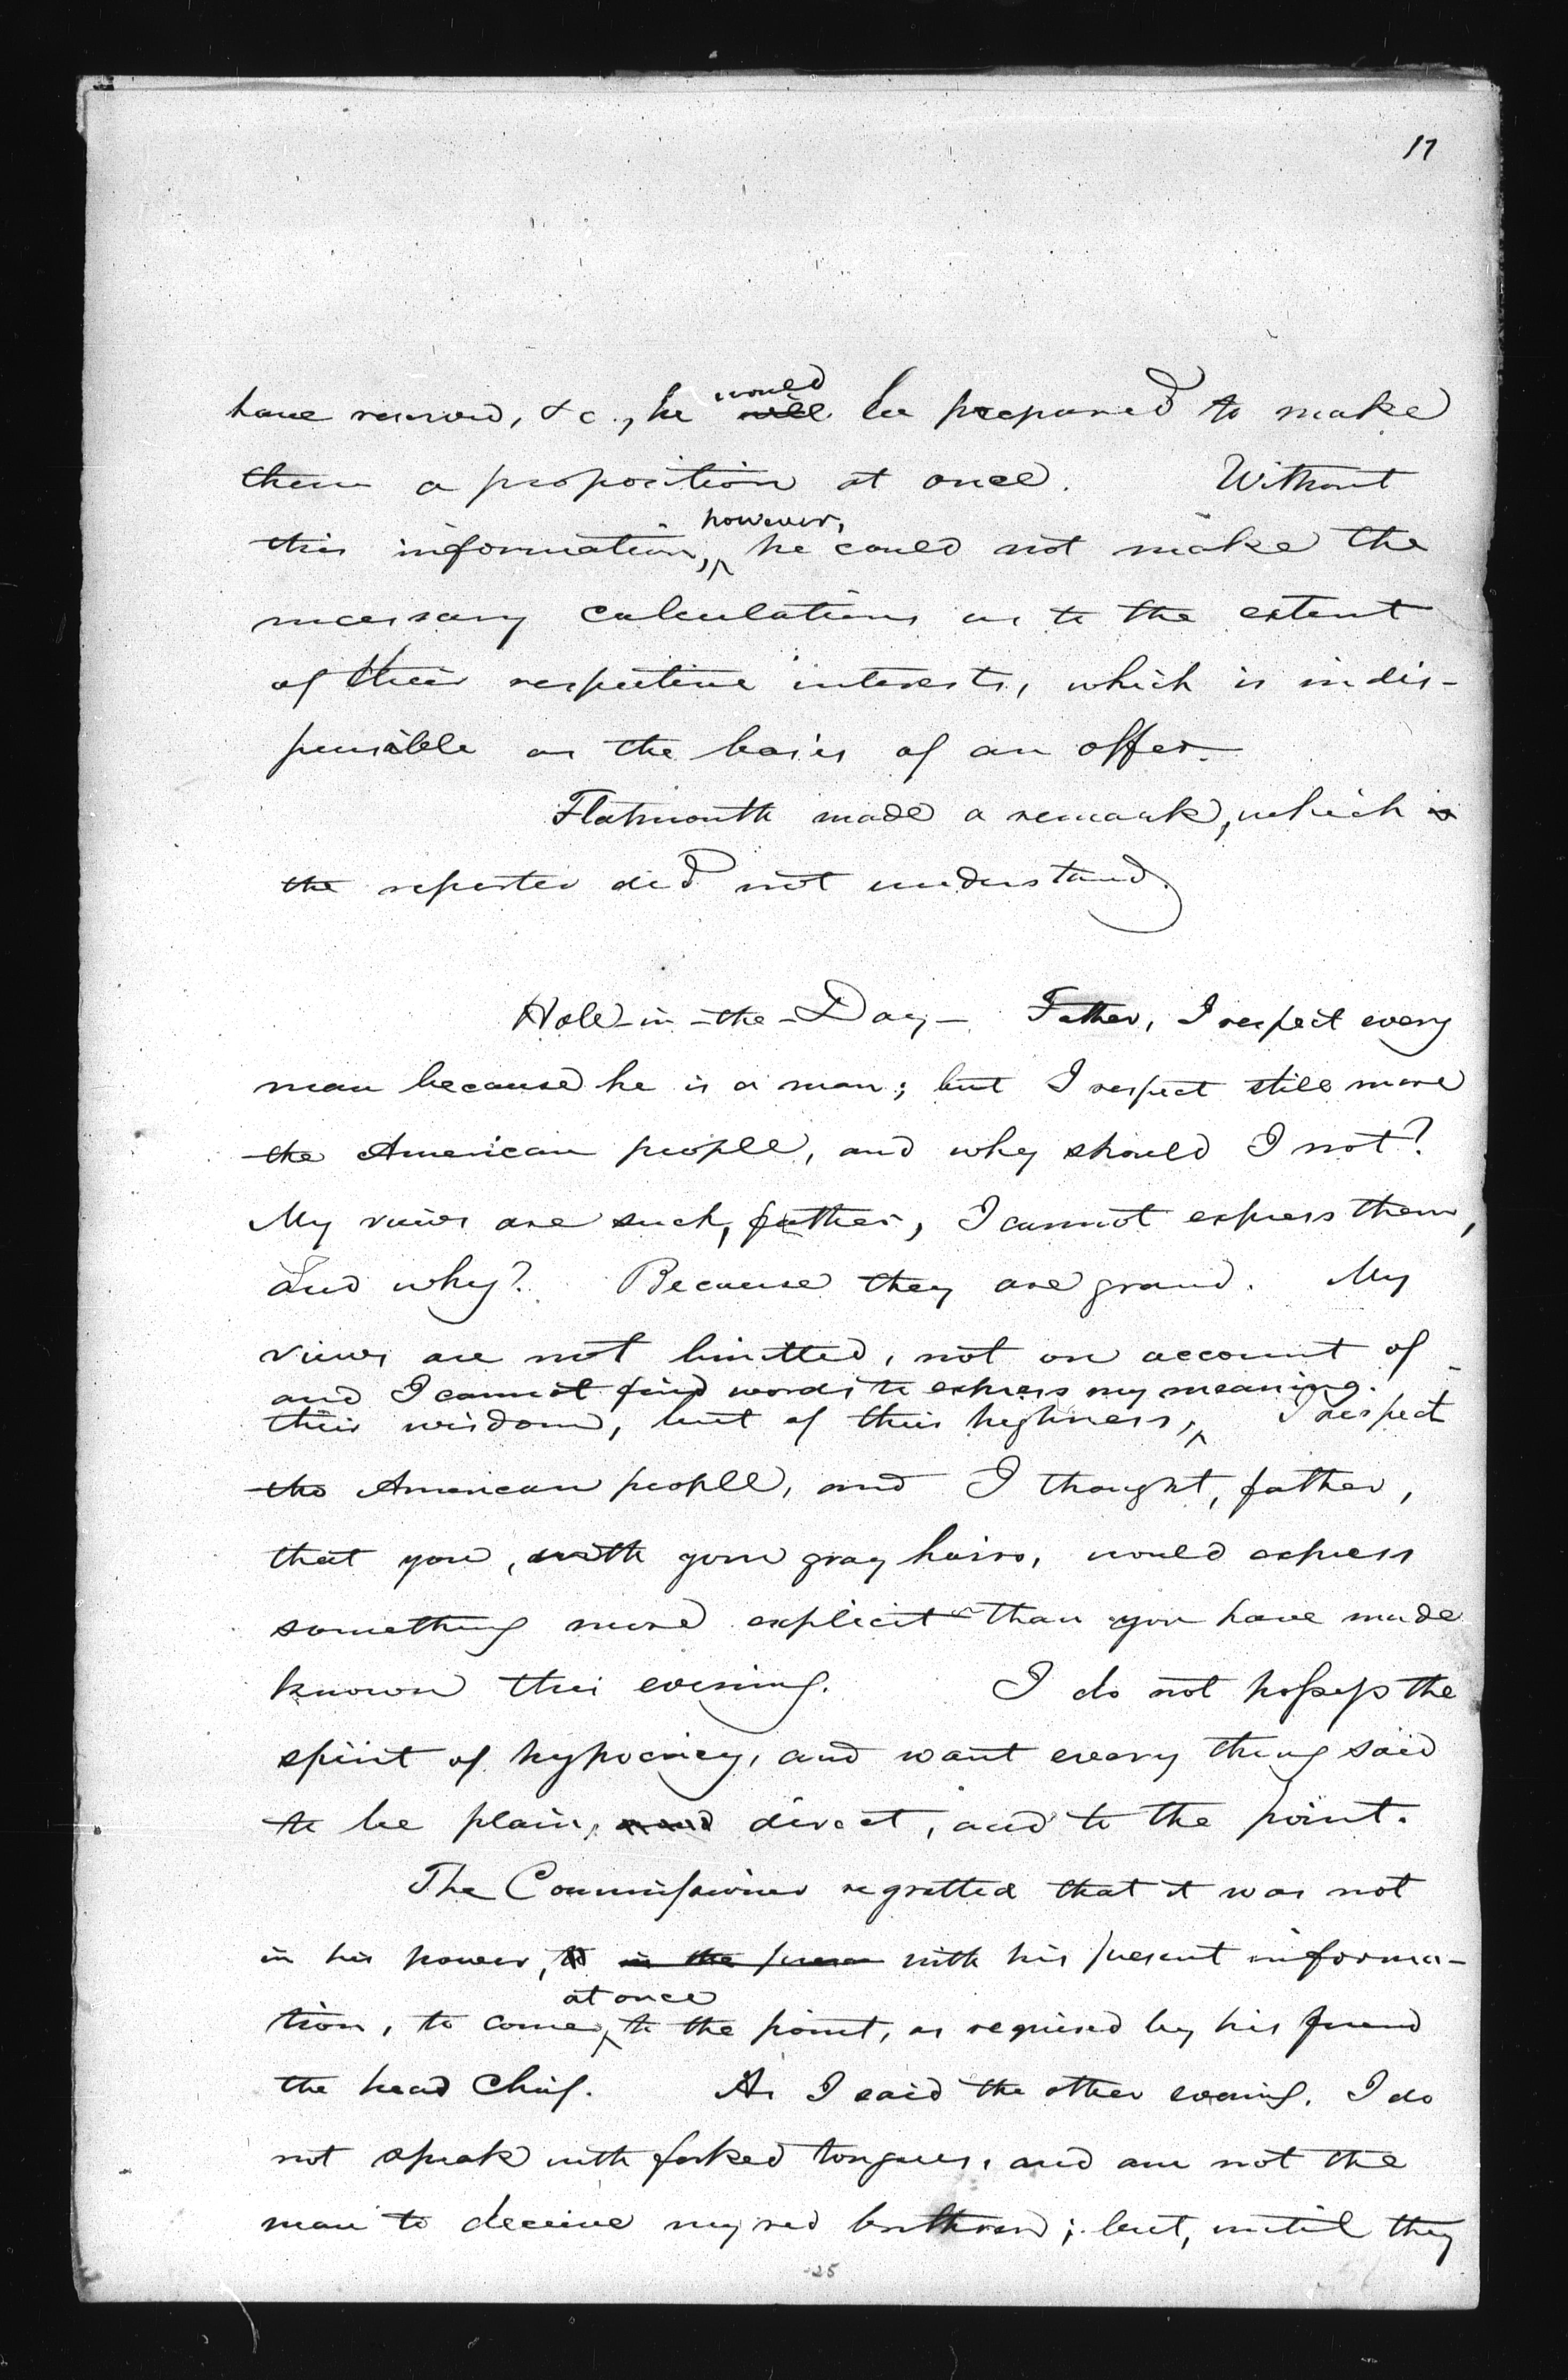 17
have reserved, &c., he would will be prepared to make
them a proposition at once. Without
this information, however, he could not make the
necessary calculations as to the extent
of their respective interests, which is indis-
pensible as the basis of an offer.
Flatmouth made a remark, which
the reporter did not understand.
Hole-in-the-Day - Father, I respect every
man because he is a man; but I respect still more
the American people, and why should I not?
My views are such, father, I cannot express them,
and why? Because they are grand. My
views are not limitted, not on account of
and I cannot find words to express my meaning.
their wisdom, but of their highness, I respect
the American people, and I thought, father,
that you, with your gray hairs, would express
something more explicit than you have made
known this evening. I do not possess the
spirit of hypocricy, and want every thing said
to be plain, and direct, and to the point.
The Commissioner regretted that it was not
in his power, in the with his present informa-
tion, to come at once to the point, as required by his friend
the head chief. As I said the other evening, I do
not speak with forked tongues, and am not the
man to deceive my red brethren; but, until they
25